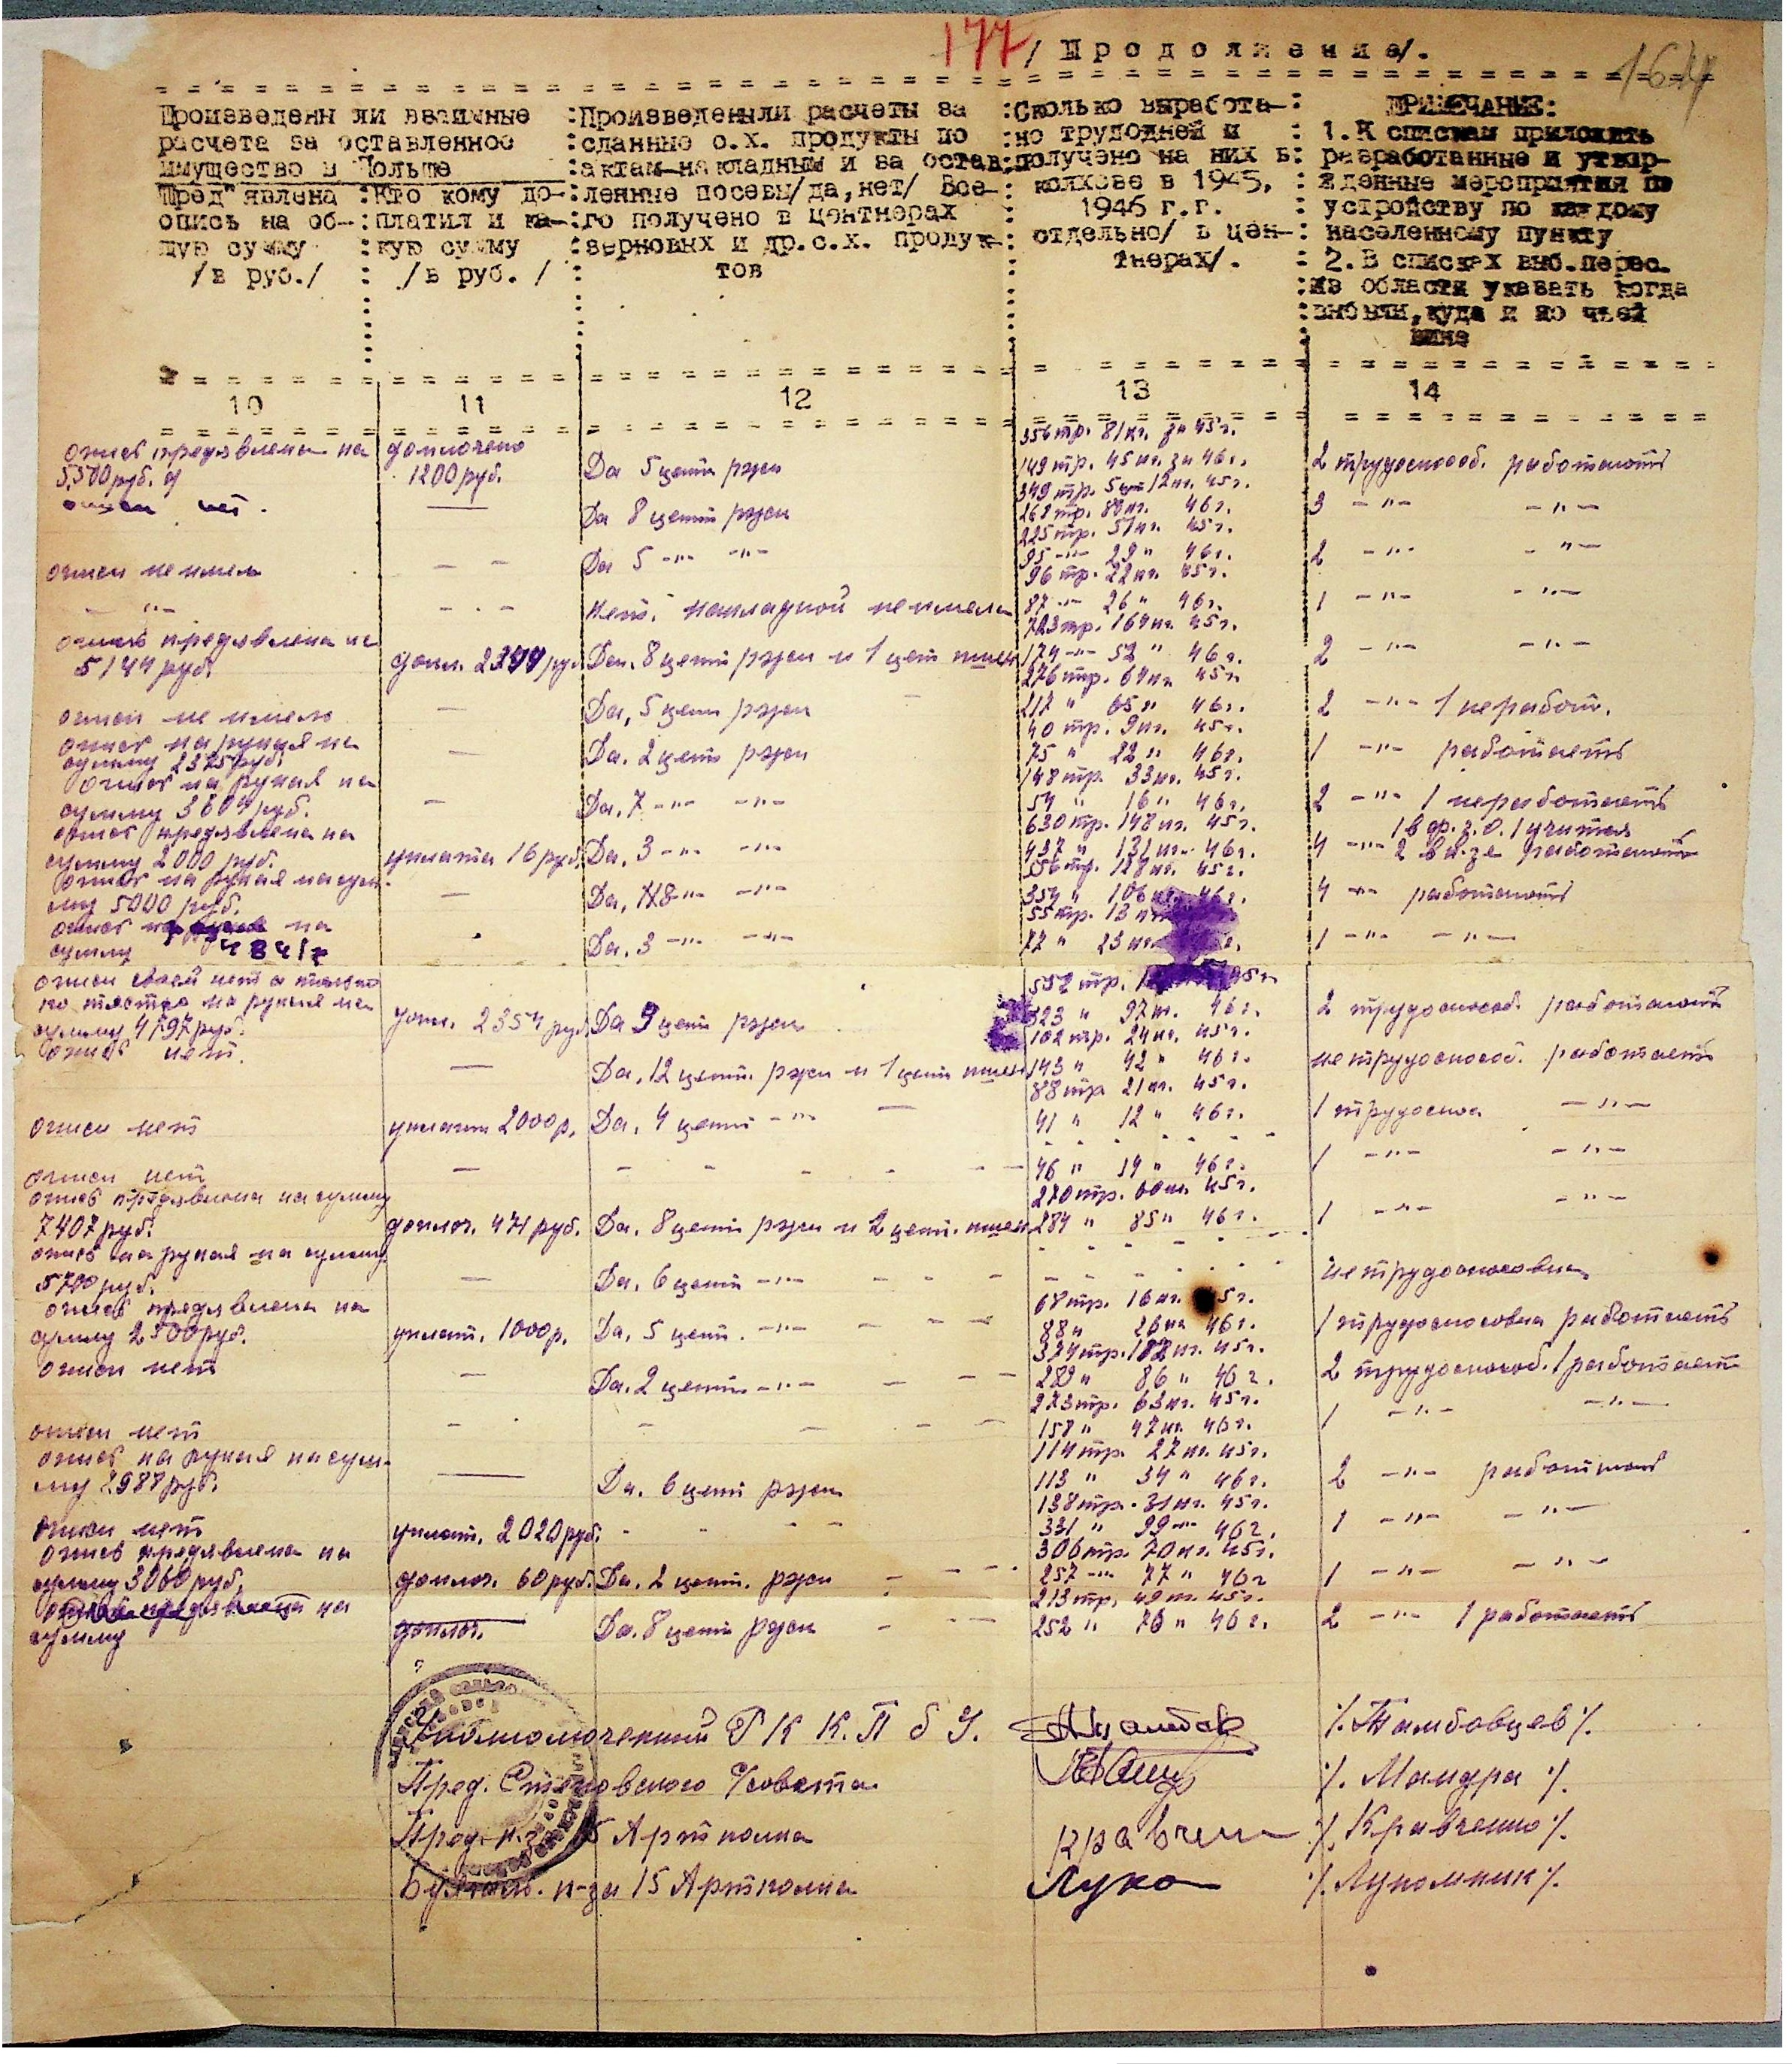 177 / Продолжение/.
164
Произведены ли взаимные
расчета за оставленное
имущество в Польше
Пред"явлена
опись на об-
щую сумму
/в руб./
Кто кому до-
платил и ка-
кую сумму
/в руб. /
Произведены ли расчеты за
сданные с.х. продукты по
актам-накладным и за остав-
ленные посевы/да,нет/ Все-
го получено в центнерах
зерновых и др.с.х. продук-
тов
Сколько выработа-
но трудодней и
получено на них в
колхозе в 1945,
1946 г.г.
отдельно/ в цен-
тнерах/.
ПРИМЕЧАНИЕ:
1. К спискам приложить
разработанные и утвер-
жденные мероприятия по
устройству по каждому
населенному пункту
2. В списках выб.перес.
из области указать когда
выбыли, куда и по чьей
вине
10 11 12 13 14
356 тр. 81 кг. за 45 г.
опись предявлена на доплочено
5.500 руб. 1200 руб. Да 5 цент ржи 149 тр. 45 кг. за 46 г. 2 трудоспособ. работают
349 тр. 5 цен 12 кг. 45 г.
описи нет. — Да 8 цент ржи 268 тр. 89 кг. 46 г. 3 -"- -"-
225 тр. 51 кг. 45 г.
описи не имел — Да 5 -"- -"- 95 -"- 29 " 46 г. 2 -"- -"-
96 тр. 22 кг. 45 г.
-"- - - - нет. накладной не имела 87 -"- 26 " 46 г. 1 -"- -"-
723 тр. 164 кг. 45 г.
опись предявлена на
5144 руб. допл. 2344 руб. Да. 8 цент ржи и 1 цент пшен 174 -"- 52 " 46 г. 2 -"- -"-
276 тр. 64 кг. 45 г.
описи не имею — Да, 5 цент ржи 217 " 65 " 46 г. 2 -"- 1 неработ.
40 тр. 9 кг. 45 г.
опись на руках на
сумму 2325 руб. — Да. 2 цент ржи 75 " 22 " 46 г. 1 -"- работает
148 тр. 33 кг. 45 г.
опись на руках на
сумму 3604 руб. — Да. 7 -"- -"- 54 " 16 " 46 г. 2 -"- 1 неработает
630 тр. 148 кг. 45 г. 1 в ф.з.о. 1 учится
опись предявлена на
сумму 2000 руб. уплата 16 руб. Да, 3 -"- -"- 437 " 131 кг. 46 г. 4 -"- 2 в к-зе работают
556 тр. 128 кг. 45 г.
опись на руках на сум-
му 5000 руб. — Да, 8 -"- -"- 354 " 106 46 г. 4 -"- работают
55 тр. 13 кг
опись на
сумму 4841 Да. 3 -"- -"- 77 " 23 кг. 1 -"- -"-
552 тр. 45 г.
описи своей нет а только
на руках на
сумму 4797 руб. допл. 2354 руб. Да 9 цент ржи 323 " 97 кг. 46 г. 2 трудоспособ. работают
102 тр. 24 кг. 45 г.
опись нет. — Да, 12 цент. ржи и 1 цент пшен 143 " 42 " 46 г. нетрудоспособ. работает
88 тр 21 кг. 45 г.
описи нет уплата 2000 р. Да. 4 цент -"- — 41 " 12 " 46 г. 1 трудоспос -"-
описи нет — - - - - 46 " 14 " 46 г. 1 -"- -"-
270 тр. 60 кг. 45 г.
опись предявлена на сумму
7407 руб. доплоч. 471 руб. Да. 8 цент ржи и 2 цент. пшен 284 " 85 " 46 г. 1 -"- -"-
опись на руках на сумму
5700 руб. — Да, 6 цент -"- - - - нетрудоспособна
68 тр. 16 кг. 45 г.
опись предявлена на
сумму 2500 руб. уплат. 1000 р. Да, 5 цент. -"- - - - 88 " 26 кг 46 г. 1 трудоспособна работает
374 тр. 182 кг. 45 г.
описи нет — Да. 2 цент -"- - - - 289 " 86 " 46 г. 2 трудоспособ. 1 работает
273 тр. 63 кг. 45 г.
описи нет - - - - 158 " 47 кг. 46 г. 1 -"- -"-
114 тр. 27 кг. 45 г.
опись на руках на сум-
му 2987 руб. — Да. 6 цент ржи 113 " 34 " 46 г. 2 -"- работают
138 тр. 31 кг. 45 г.
описи нет уплат. 2020 руб. - - - 331 " 99 -"- 46 г. 1 -"- -"-
306 тр. 70 кг. 45 г.
опись предявлена на
сумму 3060 руб. доплоч. 60 руб. Да. 2 цент. ржи - - - 257 -"- 77 " 46 г 1 -"- -"-
213 тр. 49 кг. 45 г.
опись предявлена на
сумму доплоч. Да. 8 цент ржи - - - 252 " 76 " 46 г. 2 -"- 1 работает
Уполномоченный РК К.П б У. /.Тамбовцев/.
Пред. Совета /. Мандра /.
Пред. к-за 15 Артполка Кравчен /. Кравченко /.
Бухгалт. к-за 15 Артполка Луко /. Лукомник /.